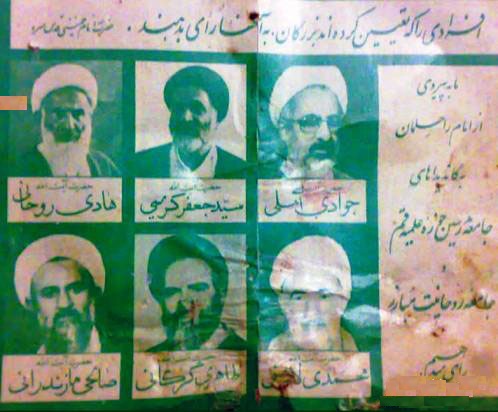 افرادی را که تعیین کرده اند بزرگان، به آنها رای بدهند .
ما به پیروی
از امام راحلمان
به کاندیداهای
جامعه مدرسین حوزه علمیه قم
و
جامعه روحانیت مبارز
رای میدهیم
حضرت آیت الله
جوادی آملی
حضرت آیت الله
سید جعفر کریمی
حضرت آیت الله
هادی روحانی
حضرت آیت الله
حضرت آیت الله
طاهری گرگانی
حضرت آیت الله
صالحی مازندرانی